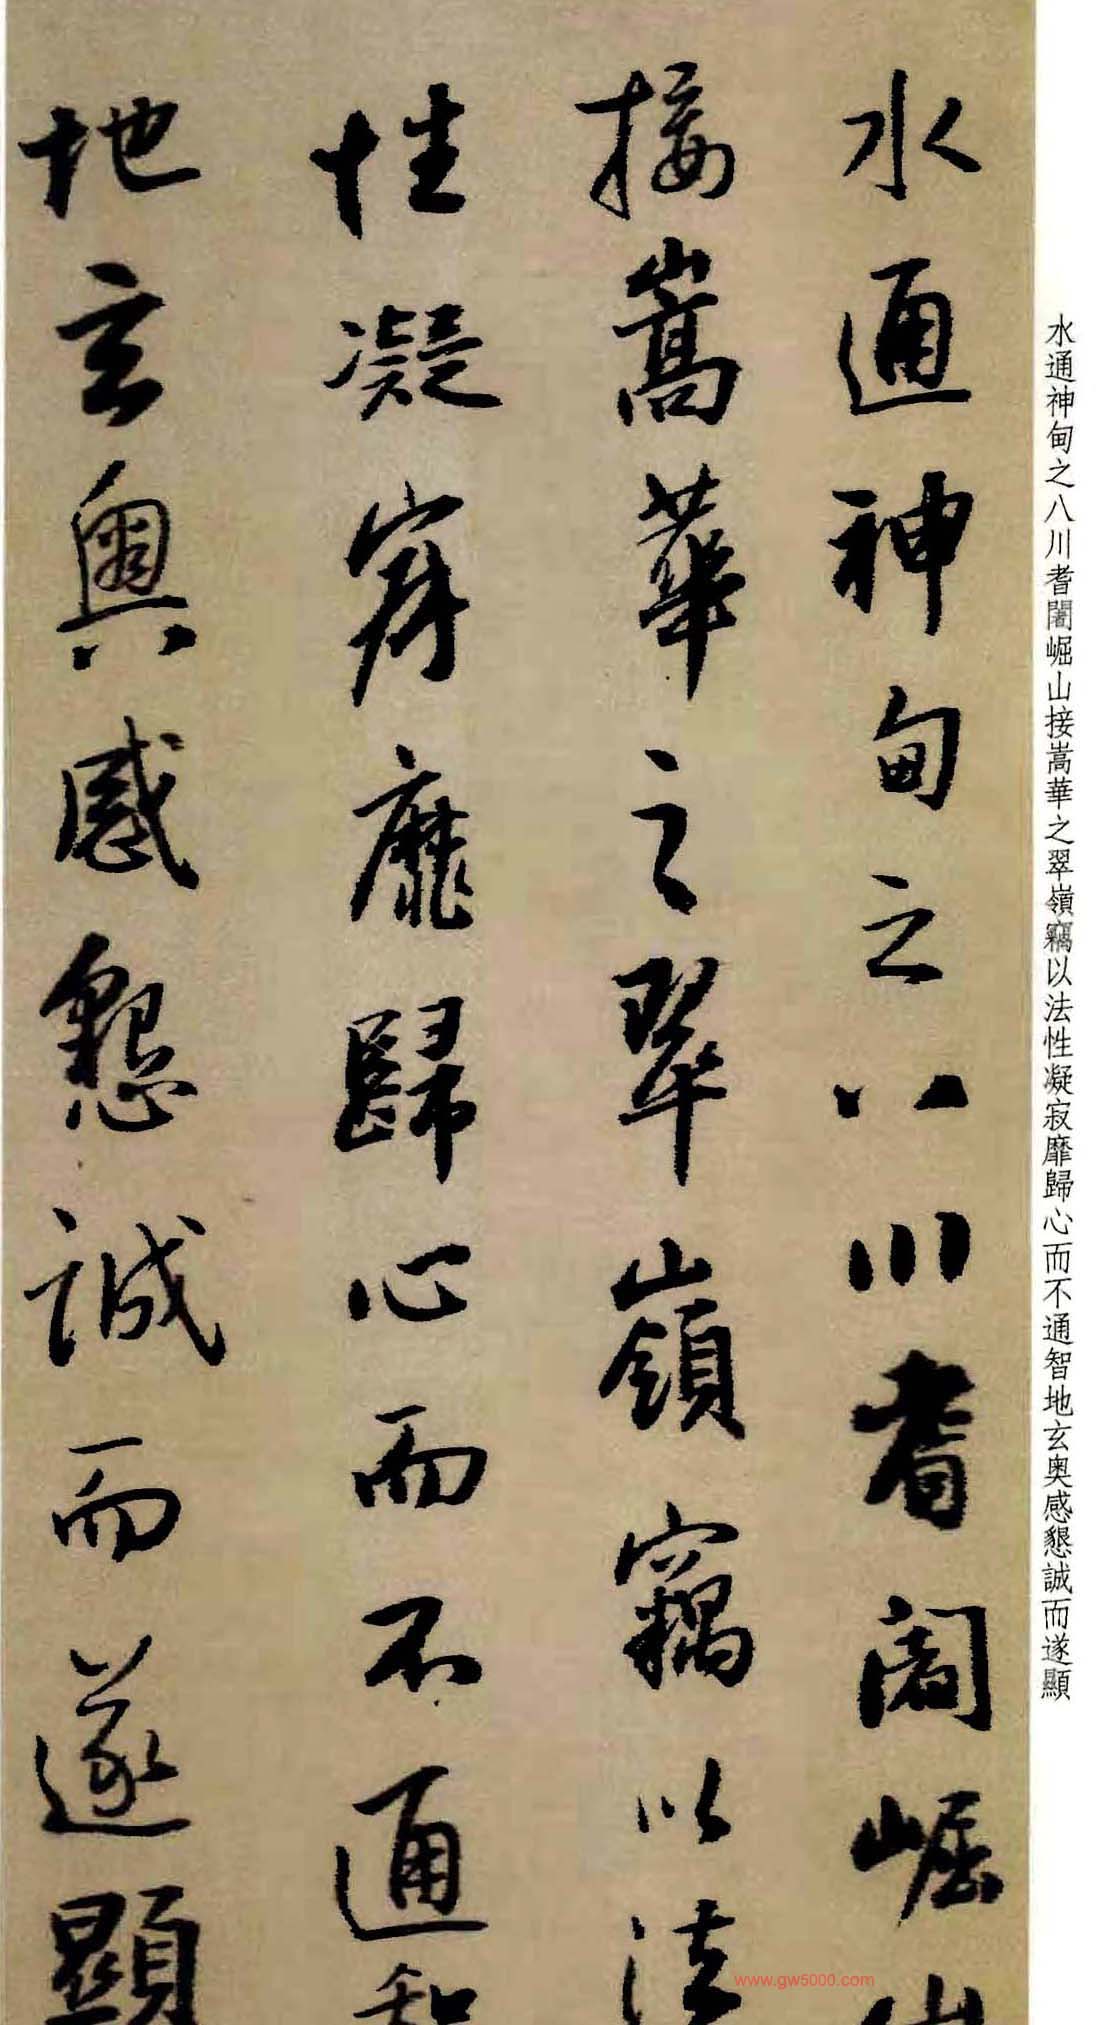 水通神甸之八川耆闍崛山接嵩華之翠嶺竊以法性凝寂靡歸心而不通智地玄奥感懇誠而遂顯
水通神甸之八川耆闍崛山
接嵩華之翠嶺竊以法
性凝寂靡歸心而不通智
地玄奧感懇誠而遂顯
www.gw5000.com